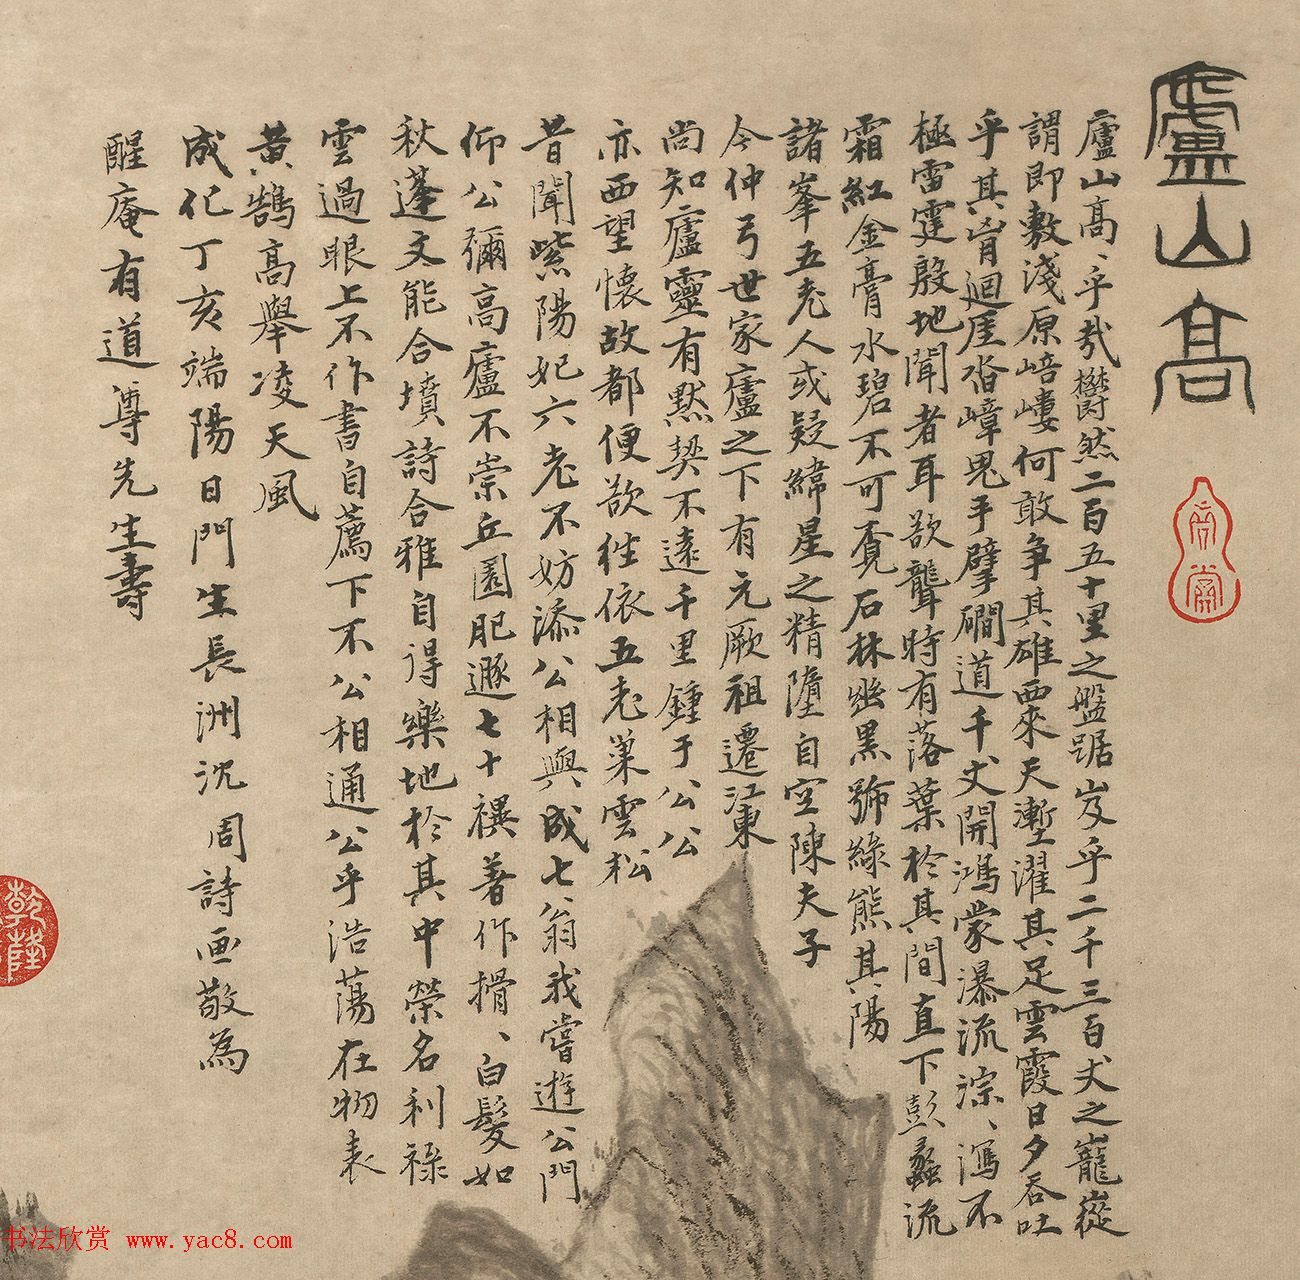 廬山高
廬山高、乎哉欝然二百五十里之盤踞岌乎二千三百丈之巃嵸
謂即敷淺原嵣嶁何敢爭其雄西來天塹濯其足雲霞日夕吞吐
乎其胷迴厓沓嶂鬼手擘磵道千丈開鴻蒙瀑流淙、瀉不
極雷霆殷地聞者耳欲聾時有落葉於其間直下彭蠡流
霜紅金膏水碧不可覔石林幽黑號綠熊其陽
諸峯五老人或疑緯星之精隳自空陳夫子
今仲弓世家廬之下有元厥祖遷江東
尚知廬靈有默契不遠千里鍾于公公
亦西望懷故都便欲往依五老巢雲松
昔聞紫陽妃六老不妨添公相與成七、翁我嘗遊公門
仰公彌高廬不崇丘園肥遯七十禩著作搰、白髮如
秋蓬文能合墳詩合雅自得樂地於其中榮名利祿
雲過眼上不作書自薦下不公相通公乎浩蕩在物表
黃鵠高舉凌天風
成化丁亥端陽日門生長洲沈周詩画敬為
醒庵有道尊先生壽
啇賞
乾隆
书法欣赏 www.yac8.com